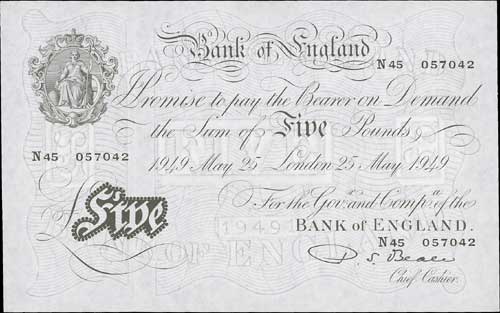 Bank of England
N45 057042
I Promise to pay the Bearer on Demand
the Sum of Five Pounds
N45 057042
1949 May 25 London 25 May 1949
For the Gov.r and Comp.a of the
Five
BANK OF ENGLAND.
N45 057042
P. S. Beale
Chief Cashier.